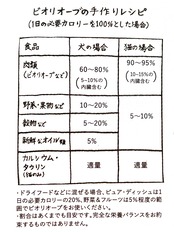 ビオリオーブの手作りレシピ
(1日の必要カロリーを100%とした場合)
食品
犬の場合
猫の場合
肉類
(ビオリオーブなど)
60〜80%
(5〜10%の
内臓含む)
90〜95%
(10〜15%の
内臓含む)
野菜・果物など
10〜20%
5%
穀物など
5〜20%
新鮮なオイル類
5%
カルシウム・
タウリン
(猫のみ)
適量
適量
・ドライフードなどに混ぜる場合、ピュア・ディッシュは1
日の必要カロリーの20%、野菜&フルーツは5%程度の範
囲でビオリオーブをお使いください。
・割合はあくまでも目安です。完全な栄養バランスをお約
束するものではありません。